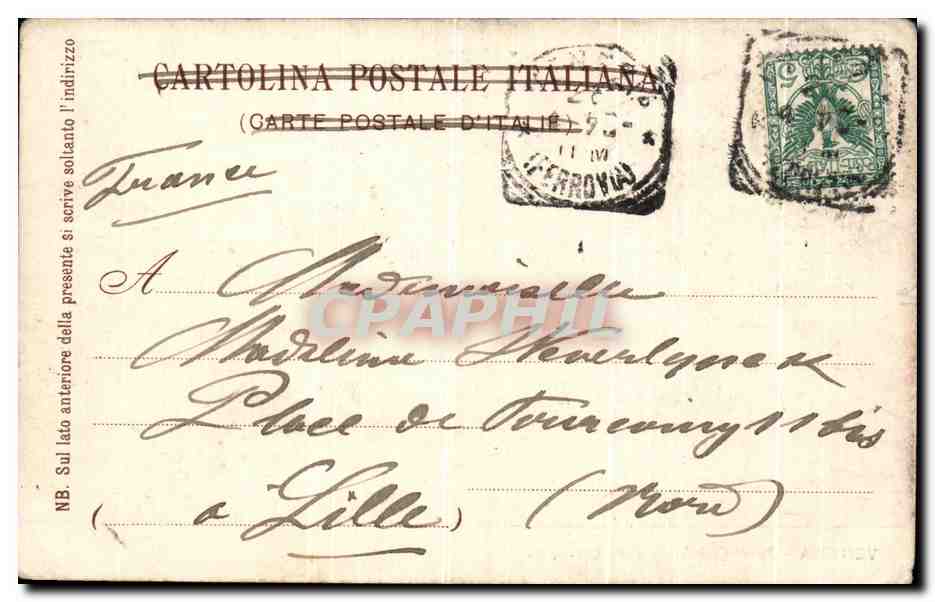 CARTOLINA POSTALE ITALIANA
(CARTE POSTALE D'ITALIE)
(FERROVIA)
5
France
A Mademoiselle
Madeleine
Place de Tourcoing 11 bis
a Lille (Nord)
NB. Sul lato anteriore della presente si scrive soltanto l'indirizzo
CPAPHIL